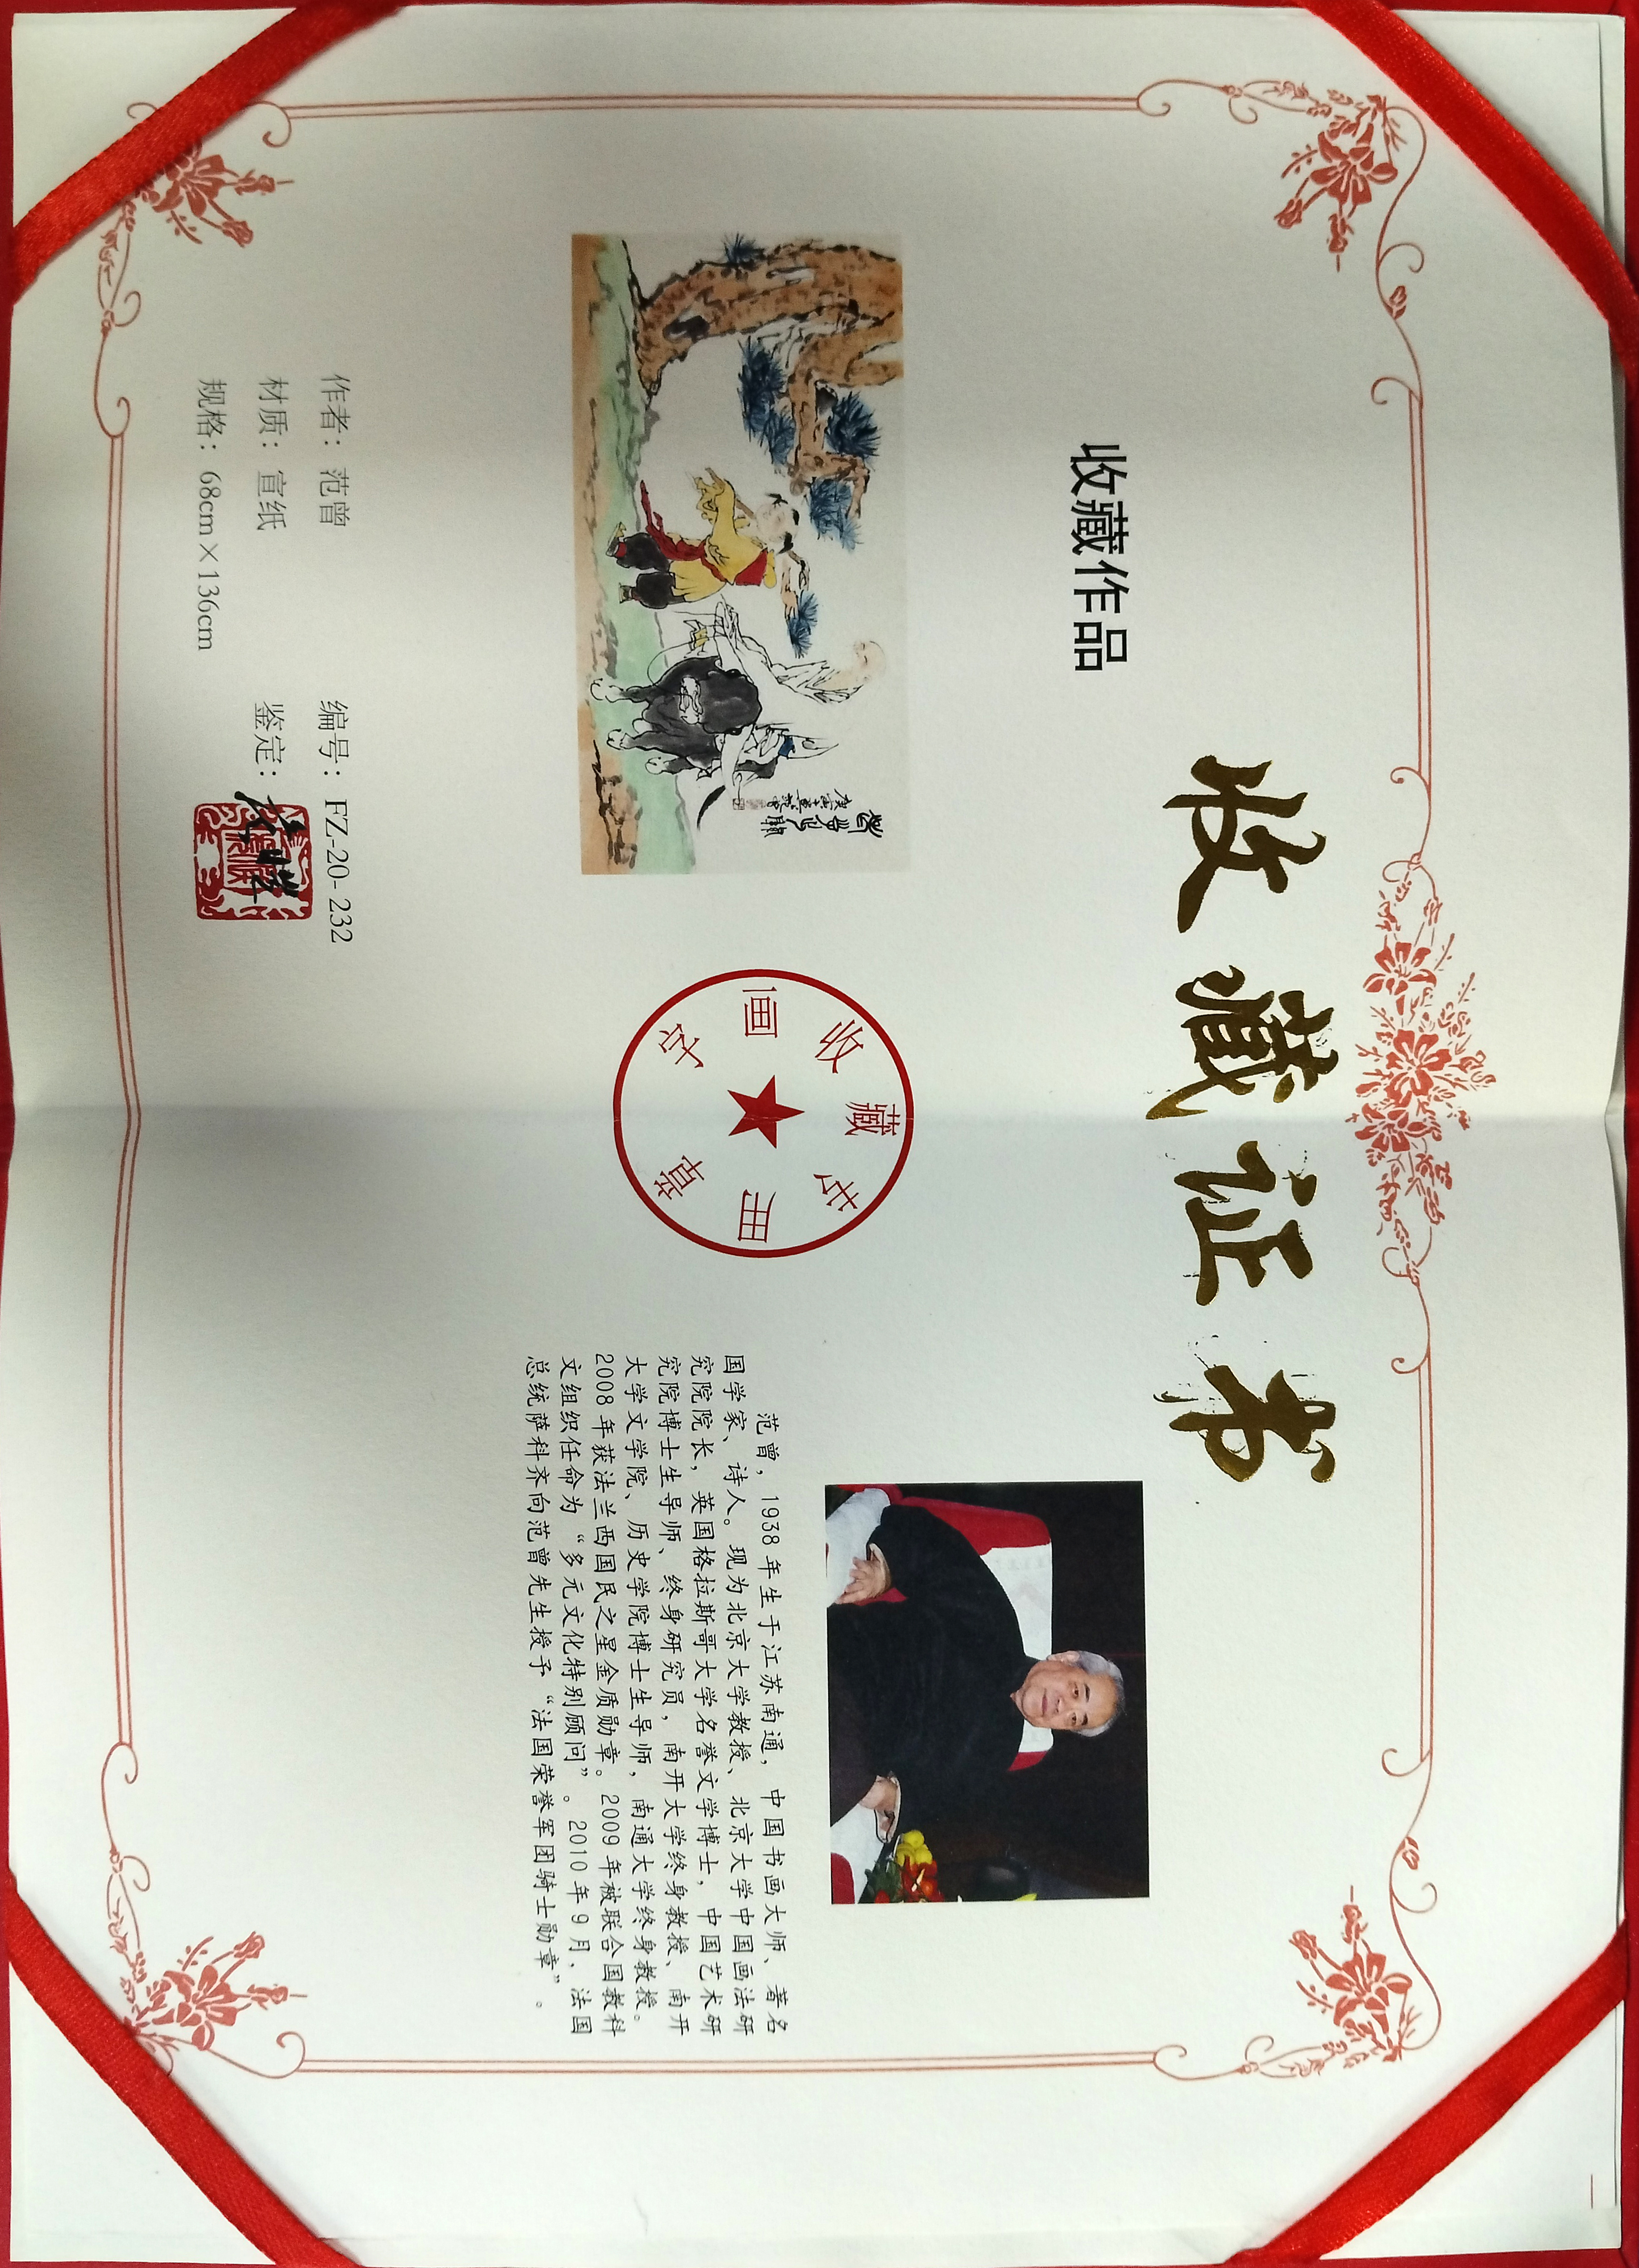 收藏证书
收藏作品
老子出关
作者：范曾
编号：FZ-20-232
材质：宣纸
鉴定：
规格：68cm×136cm
字画收藏专用章
范曾，1938年生于江苏南通，中国书画大师、著名
国学家、诗人。现为北京大学教授、北京大学中国画法研
究院院长，英国格拉斯哥大学名誉文学博士，中国艺术研
究院博士生导师、终身研究员，南开大学终身教授、南开
大学文学院、历史学院博士生导师，南通大学终身教授。
2008年获法兰西国民之星金质勋章。2009年被联合国教科
文组织任命为“多元文化特别顾问”。2010年9月、法国
总统萨科齐向范曾先生授予“法国荣誉军团骑士勋章”。